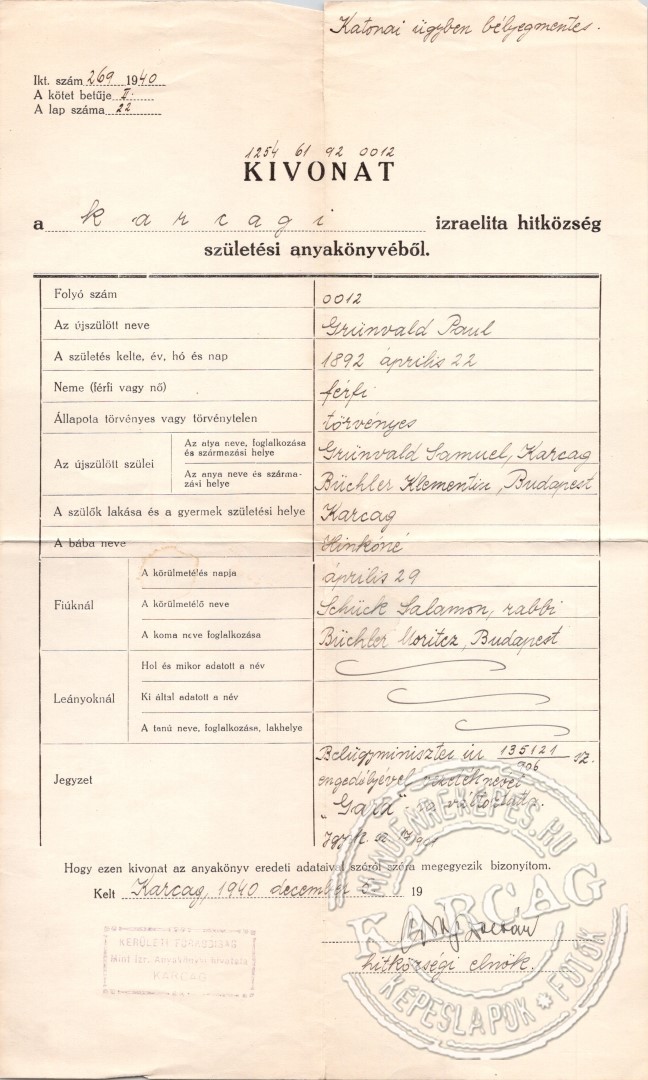 Katonai ügyben bélyegmentes.
Ikt. szám 269 1940
A kötet betűje II.
A lap száma 22
1254 61 92 0012
KIVONAT
a karcagi izraelita hitközség
születési anyakönyvéből.
Folyó szám 0012
Az újszülött neve Grünvald Paul
A születés kelte, év, hó és nap 1892 április 22
Neme (férfi vagy nő) férfi
Állapota törvényes vagy törvénytelen törvényes
Az újszülött szülei
Az atya neve, foglalkozása és származási helye Grünvald Samuel, Karcag
Az anya neve és származási helye Büchler Klementin, Budapest
A szülők lakása és a gyermek születési helye Karcag
A bába neve Hinkóné
Fiúknál
A körülmetélés napja április 29
A körülmetélő neve Schück Salamon, rabbi
A koma neve foglalkozása Büchler Moritcz, Budapest
Leányoknál
Hol és mikor adatott a név
Ki által adatott a név
A tanú neve, foglalkozása, lakhelye
Jegyzet
Belügyminiszter úr 135121/906 sz.
engedélyével vezetéknevét
"-ra változtatta.
Hogy ezen kivonat az anyakönyv eredeti adataival szóról szóra megegyezik bizonyitom.
Kelt Karcag, 1940 december 19
hitközségi elnök.
KERÜLETI FŐRABBISÁG
Mint Izr. Anyakönyvi hivatala
KARCAG
MINDENREKEPES.HU
KARCAG
KÉPESLAPOK FOTÓK